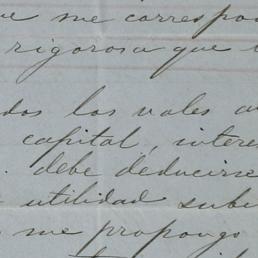 me correspo
rigorosa que
dos los vales
capital, intere
debe deducirse
utilidad sub
me propongo